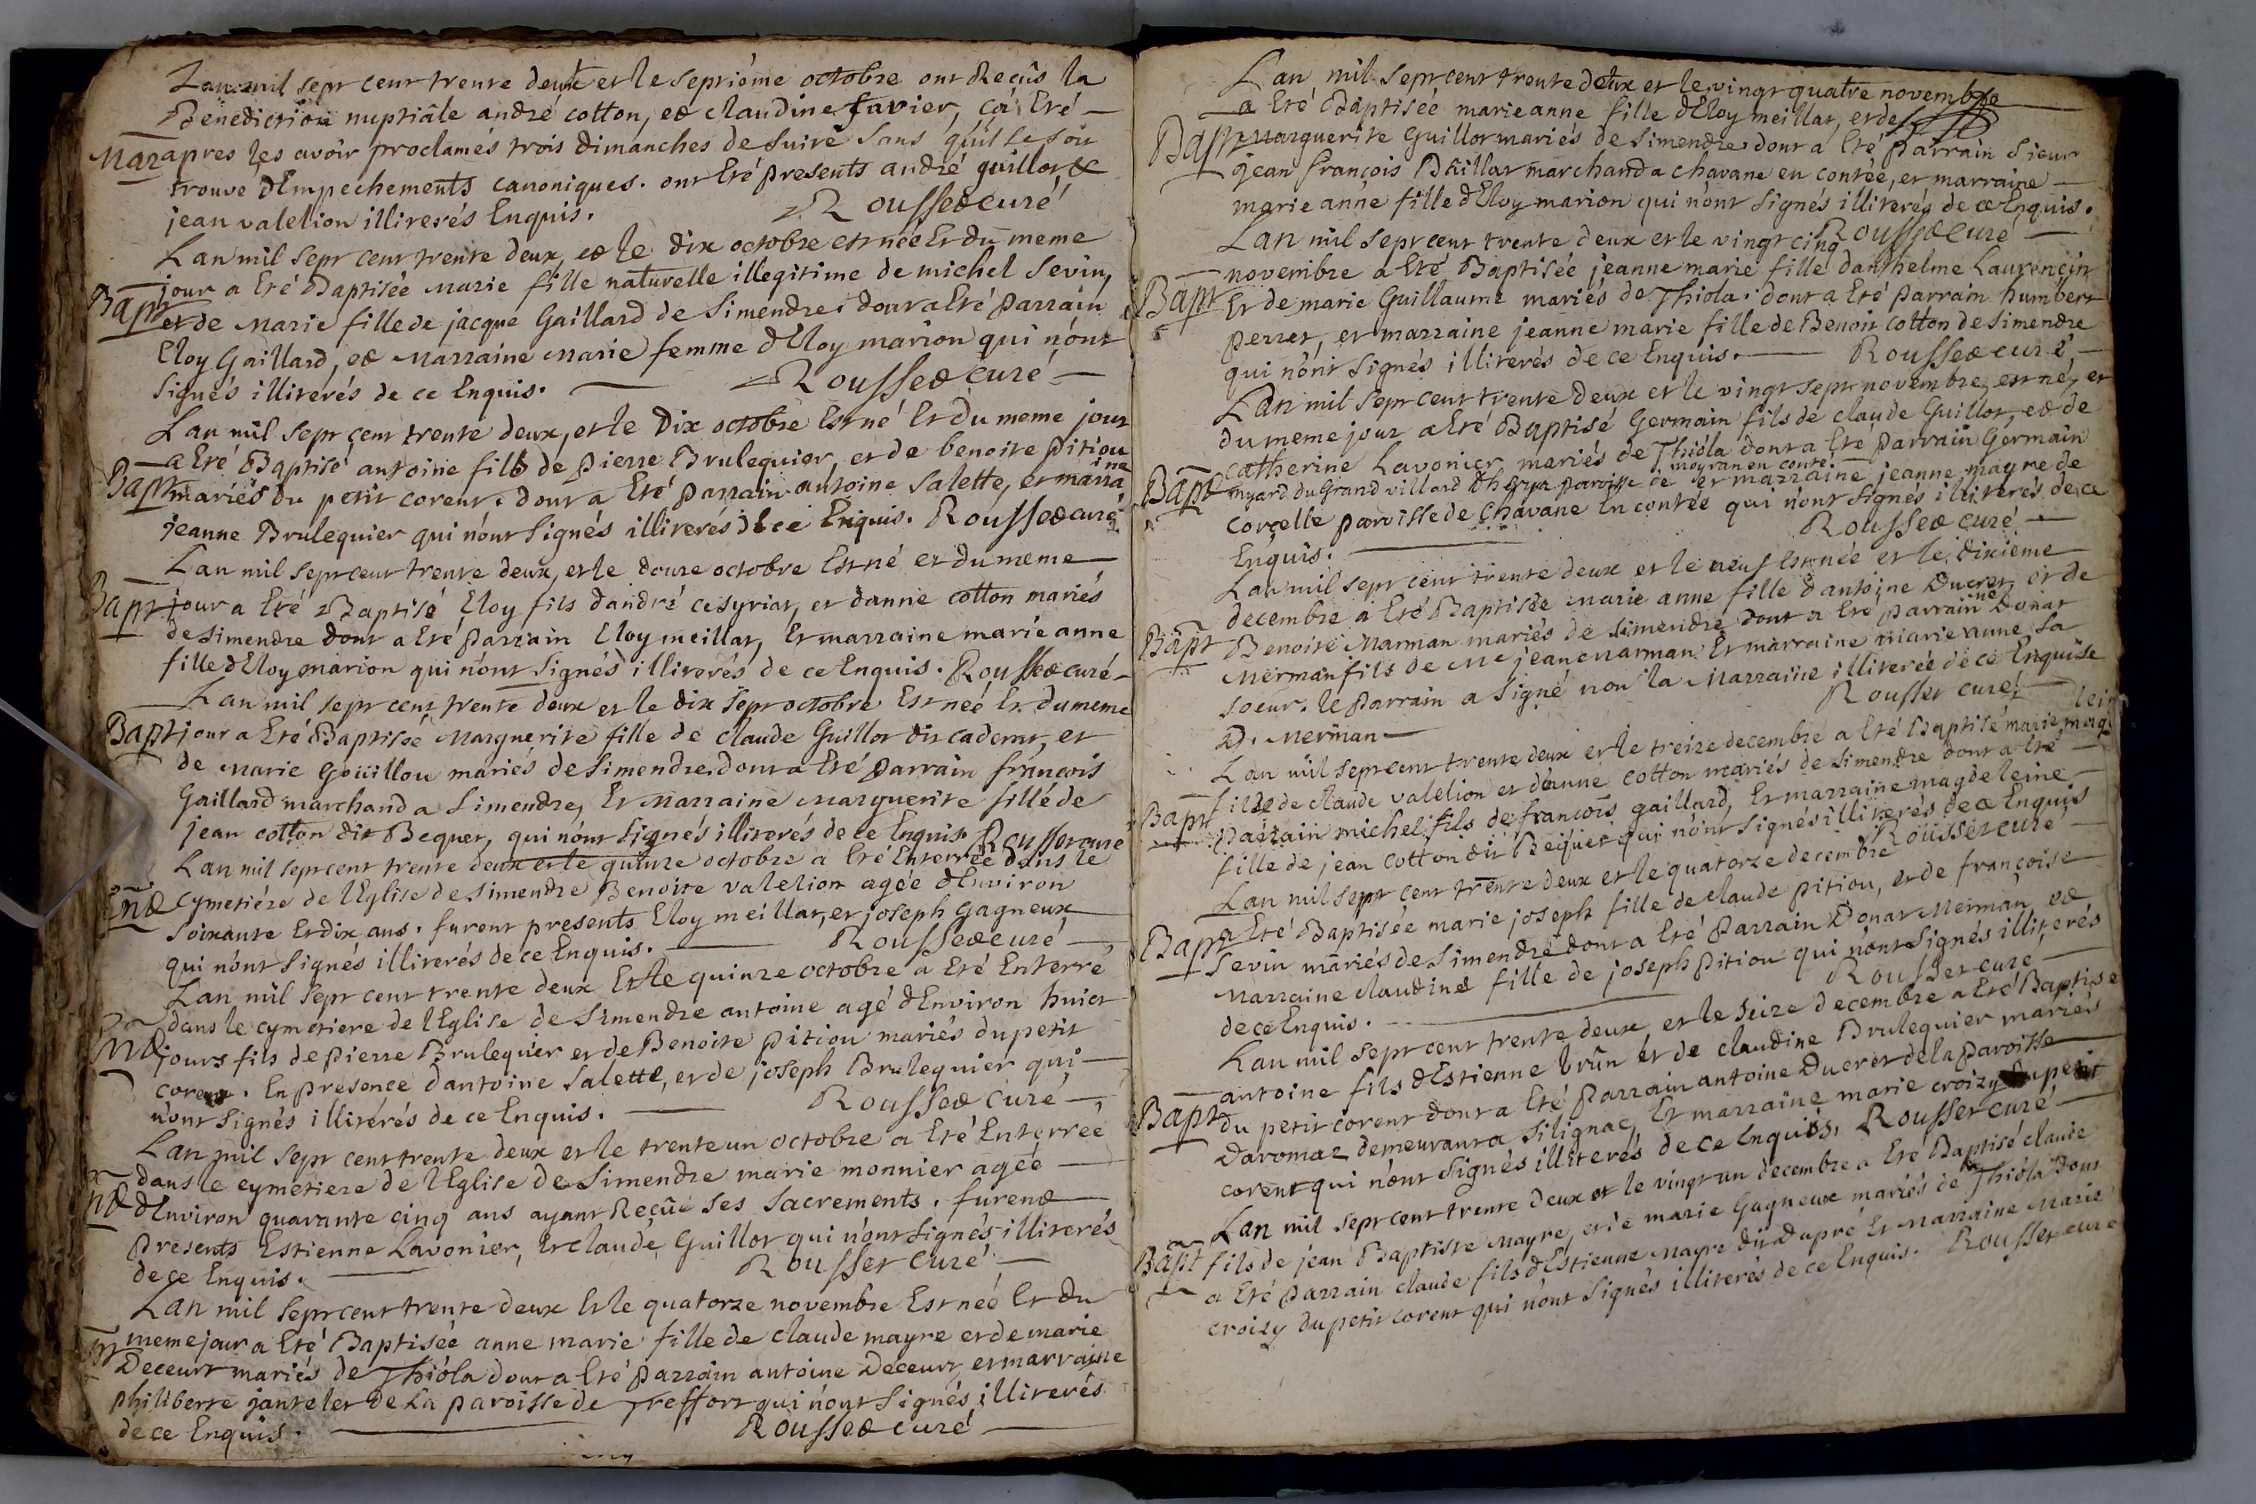 Lan mil sept cent trente deux et le septiéme octobre ont Reçûs la
Benediction nuptiâle andré cotton, et claudine favier, ça Eté
Mar apres les avoir proclamés trois dimanches de suite sans quil se soit
trouvé dEmpechements canoniques. ont Eté presents andré guillot &
jean valelion illiterés Enquis. Rousset curé
Lan mil sept cent trente deux, et le dix octobre est née Et du meme
jour a Eté Baptisée Marie fille naturelle illegitime de michel Sevin,
Bapt et de Marie fille de jacque Gaillard de Simendre. dont a Eté parrain
Eloy Gaillard, et Marraine Marie femme dEloy marion qui n'ont
signés illiterés de ce Enquis. Rousset curé
Lan mil sept cent trente deux, et le Dix octobre Est né Et du meme jour
a Eté Baptisé antoine fils de pierre Brulequier, et de benoite pitiou
Bapt mariés du petit corent. dont a Eté parrain antoine Salette, et marraine
jeanne Brulequier qui n'ont signés illiterés de ce Enquis. Rousset curé
Lan mil sept cent trente deux, et le douze octobre Est né et du meme
Bapt jour a Eté Baptisé Eloy fils dandré cesyriat, et danne cotton mariés
de simendre dont a Eté parrain Eloy meillat, Et marraine marie anne
fille dEloy marion qui n'ont signés illiterés de ce Enquis. Rousset curé
Lan mil sept cent trente deux et le dix sept octobre Est née Et du meme
Bapt jour a Eté Baptisée Marguerite fille de claude Guillot dit cadet, et
de Marie Goüillou mariés de simendre. dont a Eté parrain françois
Gaillard marchand a Simendre, Et Marraine Marguerite fille de
jean cotton dit Bequet, qui n'ont signés illiterés de ce Enquis Rousset curé
Lan mil sept cent trente deux et le quinze octobre a Eté Enterrée dans le
End cymetiére de lEglise de simendre Benoite valelion agée dEnviron
soixante Et dix ans. furent presents Eloy meillat, et joseph Gagneux
qui n'ont signés illiterés de ce Enquis. Rousset curé
Lan mil sept cent trente deux Et le quinze octobre a Eté Enterré
dans le cymetiere de lEglise de Simendre antoine agé dEnviron huict
End jours fils de pierre Brulequier et de Benoite pitiou mariés du petit
corent. En presence dantoine Salette, et de joseph Brulequier qui
n'ont signés illiterés de ce Enquis. Rousset curé
Lan mil sept cent trente deux et le trente un octobre a Eté Enterrée
dans le cymetiere de lEglise de Simendre marie monnier agée
End dEnviron quarante cinq ans ayant Reçûe ses sacrements. furent
presents Estienne Lavonier, Et claude Guillot qui n'ont signés illiterés
de ce Enquis. Rousset Curé
Lan mil sept cent trente deux Et le quatorze novembre Est née Et du
meme jour a Eté Baptisée anne marie fille de claude mayre et de marie
Deceurt mariés de Thióla dont a Eté parrain antoine Deceurt, et marraine
philiberte jantelet de la paroisse de Treffort qui n'ont signés illiterés
de ce Enquis. Rousset curé
Lan mil sept cent trente deux et le vingt quatre novembre
a Eté Baptisée marie anne fille dEloy meillat, et de
Bapt Marguerite Guillot mariés de simendre dont a Eté parrain Sieur
jean françois Paillat marchand a chavane en contéé, et marraine
marie anne fille dEloy marion qui n'ont signés illiterés de ce Enquis.
Rousset Curé
Lan mil sept cent trente deux et le vingt cinq
novembre a Eté Baptisée jeanne marie fille danthelme Laurencin
Bapt Et de marie Guillaume mariés de Thiola. dont a Eté parrain humbert
perret, et marraine jeanne marie fille de Benoit cotton de simendre
qui n'ont signés illiterés de ce Enquis. Rousset curé
Lan mil sept cent trente deux et le vingt sept novembre est né, et
du meme jour a Eté Baptisé Germain fils de claude Guillot, et de
catherine Lavonier mariés de Thióla dont a Eté parrain Germain
moyran en conté
Bapt myard du Grand villard paroisse de et marraine jeanne mayre de
corcelle paroisse de chavane En contéé qui n'ont signés illiterés de ce
Enquis. Rousset curé
Lan mil sept cent trente deux et le neuf est née et le dixieme
decembre a Eté Baptisée Marie anne fille dantoine Ducret et de
Bapt Benoite Marman mariés de simendre dont a Eté parrain Donat
Merman fils de Me jean Marman Et marraine marie anne Sa
soeur. le parrain a signé non la Marraine illiterée de ce Enquise
D. Merman Rousset curé
Lan mil sept cent trente deux et le treize decembre a Eté Baptisé marie magdeleine
fille de claude valelion et danne cotton mariés de Simendre dont a Eté
Bapt parrain michel fils de francois gaillard, Et marraine magdeleine
fille de jean cotton dit Bequet qui n'ont signés illiterés de ce Enquis
Rousset curé
Lan mil sept cent trente deux et le quatorze decembre
a Eté Baptisée marie joseph fille de claude pitiou, et de françoise
Bapt Sevin mariés de Simendre dont a Eté parrain Donat Merman, et
Marraine claudine fille de joseph pitiou qui n'ont signés illiterés
de ce Enquis. Rousset curé
Lan mil sept cent trente deux et le seize decembre a Eté Baptisé
antoine fils dEstienne brûn et de claudine Brulequier mariés
Bapt du petit corent dont a Eté parrain antoine Ducret de la paroisse
Daromaz demeurant a Silignac, Et marraine marie croizy du petit
corent qui n'ont signés illiterés de ce Enquis. Rousset curé
Lan mil sept cent trente deux et le vingt un decembre a Eté Baptisé claude
Bapt fils de jean Baptiste Mayre, et de marie Gagneux mariés de Thióla dont
a Eté parrain claude fils dEstienne Mayre dit Dupré Et Marraine Marie
croizy du petit corent qui n'ont signés illiterés de ce Enquis. Rousset curé